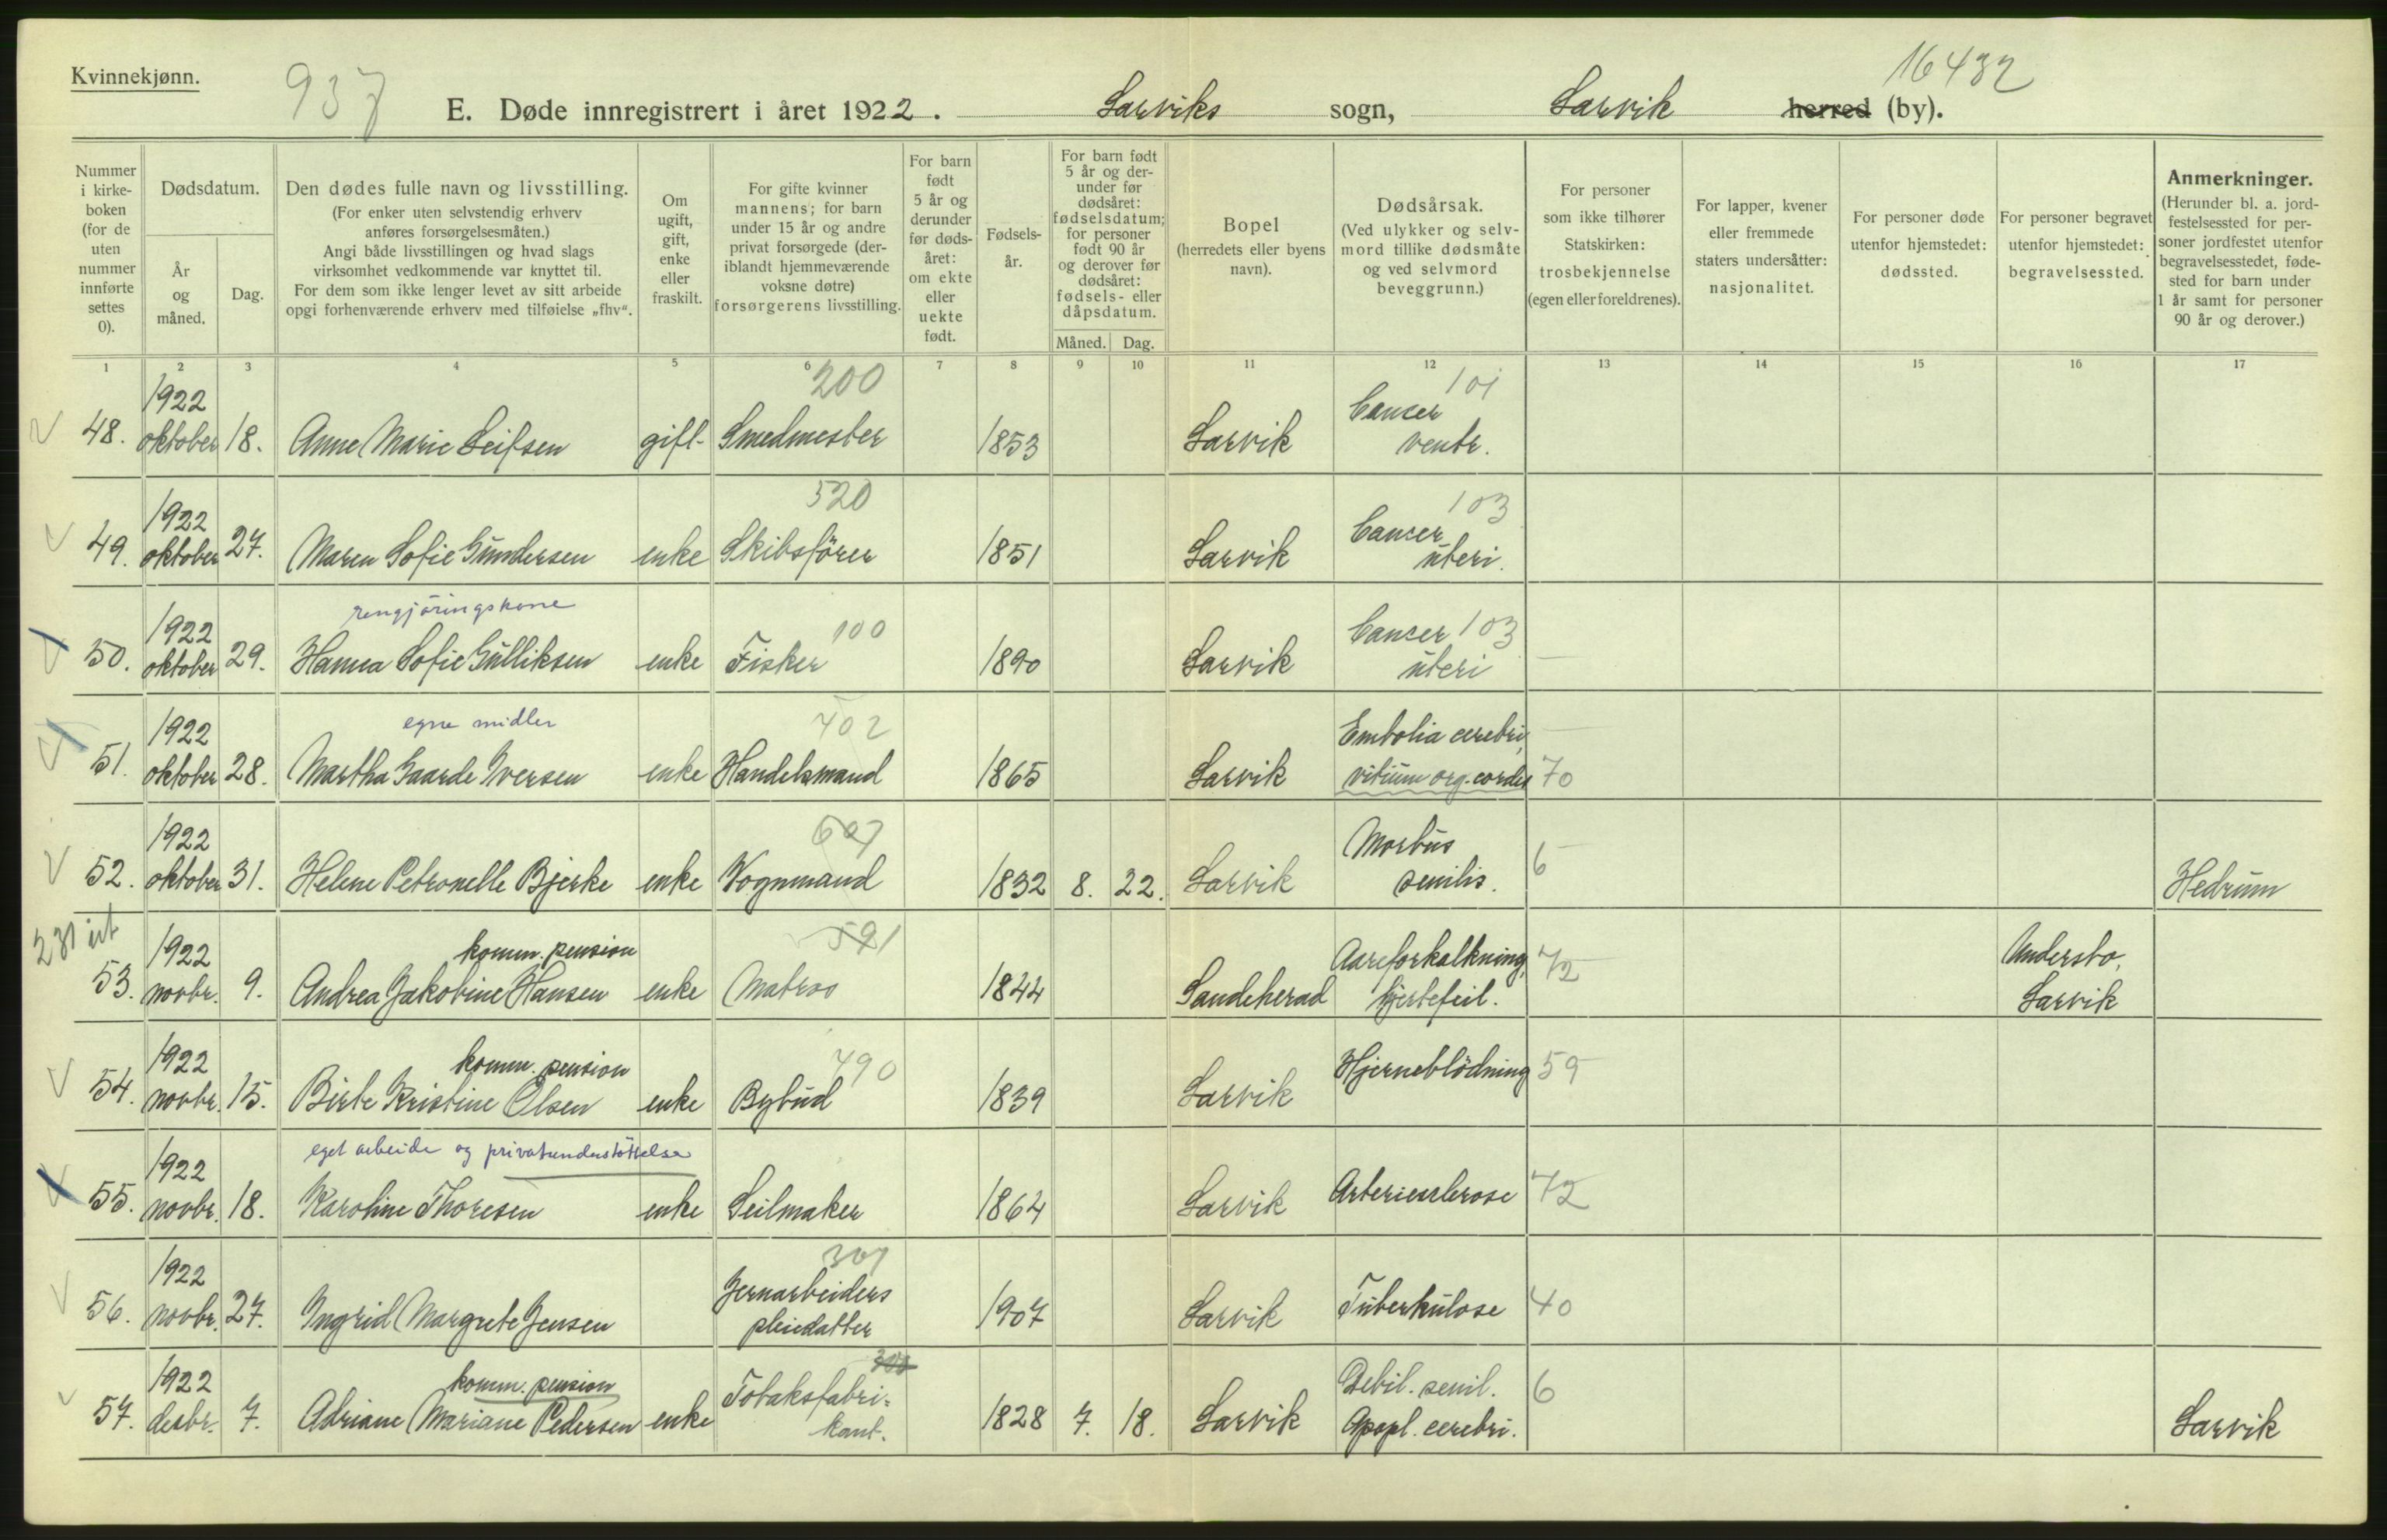 Kvinnekjønn.
937
16432
E. Døde innregistrert i året 1922. Larviks sogn, Larvik herred (by).
Nummer i kirke-boken (for de uten nummer innførte settes 0).
Dødsdatum.
År og måned.
Dag.
Den dødes fulle navn og livsstilling.
(For enker uten selvstendig erhverv anføres forsørgelsesmåten.)
Angi både livsstillingen og hvad slags virksomhet vedkommende var knyttet til.
For dem som ikke lenger levet av sitt arbeide opgi forhenværende erhverv med tilføielse „fhv“.
Om ugift, gift, enke eller fraskilt.
For gifte kvinner mannens; for barn under 15 år og andre privat forsørgede (deriblandt hjemmeværende voksne døtre) forsørgerens livsstilling.
For barn født 5 år og derunder før dødsåret: om ekte eller uekte født.
Fødsels-år.
For barn født 5 år og derunder før dødsåret: fødselsdatum; for personer født 90 år og derover før dødsåret: fødsels- eller dåpsdatum.
Måned. Dag.
Bopel
(herredets eller byens navn).
Dødsårsak.
(Ved ulykker og selvmord tillike dødsmåte og ved selvmord beveggrunn.)
For personer som ikke tilhører Statskirken: trosbekjennelse (egen eller foreldrenes).
For lapper, kvener eller fremmede staters undersåtter: nasjonalitet.
For personer døde utenfor hjemstedet: dødssted.
For personer begravet utenfor hjemstedet: begravelsessted.
Anmerkninger.
(Herunder bl. a. jordfestelsessted for personer jordfestet utenfor begravelsesstedet, fødested for barn under 1 år samt for personer 90 år og derover.)
1 2 3 4 5 6 7 8 9 10 11 12 13 14 15 16 17
200 101
48. 1922 oktober 18. Anne Marie Leifsen gift- Smedmester 1853 Larvik Cancer ventr.
520 103
49. 1922 oktober 27. Maren Sofie Gundersen enke Skibsfører 1851 Larvik Cancer uteri.
rengjøringskone 100 103
50. 1922 oktober 29. Hanna Sofie Gulliksen enke Fisker 1890 Larvik Cancer uteri
egne midler 402
51. 1922 oktober 28. Martha Gaarde Iversen enke Handelsmand 1865 Larvik Embolia cerebri, vitium org. cordis 70
607
52. 1922 oktober 31. Helene Petronelle Bjerke enke Vognmand 1832 8. 22. Larvik Morbus senilis. 6 Hedrum
komm. pension 521
53. 1922 novbr. 9. Andrea Jakobine Hansen enke Matros 1844 Sandeherad Aareforkalkning, hjertefeil. 72 Undersbo, Larvik
komm. pension 490
54. 1922 novbr. 15. Birte Kristine Olsen enke Bybud 1839 Larvik Hjerneblødning 59
eget arbeide og privatunderstøttelse
55. 1922 novbr. 18. Karoline Thoresen enke Seilmaker 1864 Larvik Arteriesclerose 72
307
56. 1922 novbr. 27. Ingrid Margrete Jensen Jernarbeiders pleiedatter 1907 Larvik Tuberkulose 40
komm. pension
57. 1922 desbr. 7. Adriane Mariane Pedersen enke Tobaksfabrikant. 1828 7. 18. Larvik Debil. senil. Apopl. cerebri. 6 Larvik